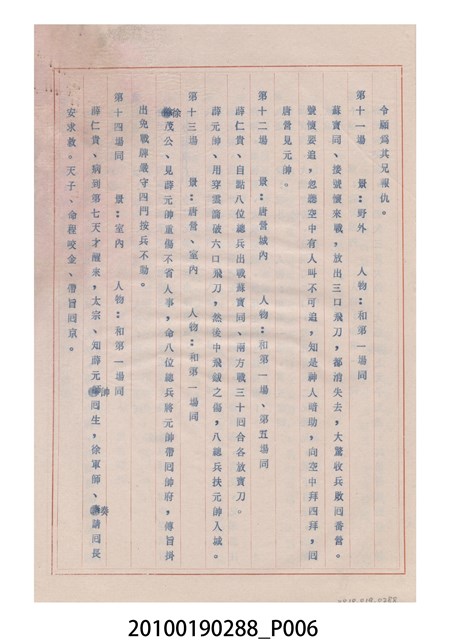 令願為其兄報仇。
第十一場　景：野外　人物：和第一場同
蘇寶同、接號懷來戰，放出三口飛刀，都消失去，大驚收兵敗囘番營。
號懷要追，忽聽空中有人叫不可追，知是神人暗助，向空中拜四拜，囘
唐營見元帥。
第十二場　景：唐營城內　人物：和第一場、第五場同
薛仁貴、自點八位總兵出戰蘇寶同、兩方戰三十囘合各放寶刀。
薛元帥、用穿雲箭破六口飛刀，然後中飛鈸之傷，八總兵扶元帥入城。
第十三場　景：唐營、室內　人物：和第一場同
徐茂公、見薛元帥重傷不省人事，命八位總兵將元帥帶囘帥府，傳旨掛
出免戰牌嚴守四門按兵不動。
第十四場同　景：室內　人物：和第一場同
薛仁貴、病到第七天才醒來，太宗、知薛元帥囘生，徐軍師、奏請囘長
安求救。天子、命程咬金、帶旨囘京。
20100190288_P006